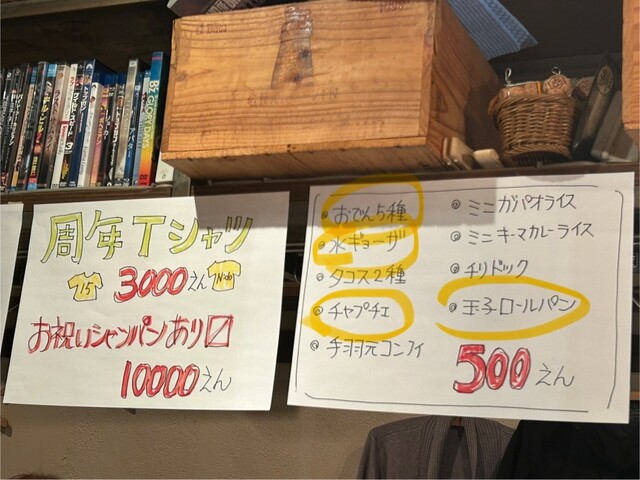 周年Tシャツ
15
3000えん
お祝いシャンパンあり〼
10000えん
◎ おでん5種
◎ 水ギョーザ
◎ タコス2種
◎ チャプチェ
◎ 手羽元コンフィ
◎ ミニガパオライス
◎ ミニキーマカレーライス
◎ チリドック
◎ 玉子ロールパン
500えん